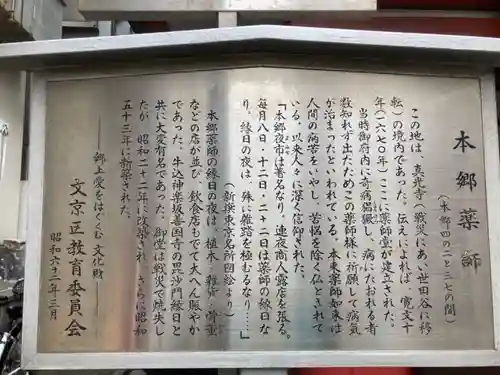 本郷薬師
(本郷四の二と三七の間)
この地は、真光寺(戦災にあい世田谷に移
転)の境内であった。伝えによれば、寛文十
年(一六七〇年)ここに薬師堂が建立された。
当時御府内に奇病猖獗し、病にたおれる者
数知れず出たためこの薬師様に祈願して病気
が治まったといわれている。本来薬師如来は
人間の病苦をいやし、苦悩を除く仏とされて
いる。以来人々に深く信仰された。
「本郷夜市は著名なり、連夜商人露店を張る。
毎月八日、十二日、二十二日は薬師の縁日な
り、縁日の夜は、殊に雑踏を極むるなり……」
(新撰東京名所図絵より)
本郷薬師の縁日の夜は、植木、雑貨、骨董
などの店が並び、飲食店もでて大へん賑やか
であった。牛込神楽坂善国寺の毘沙門縁日と
共に大変有名であった。御堂は戦災で焼失し
たが、昭和二十二年に改築され、さらに昭和
五十三年に新築された。
―郷土愛をはぐくむ文化財―
文京区教育委員会
昭和六十二年三月